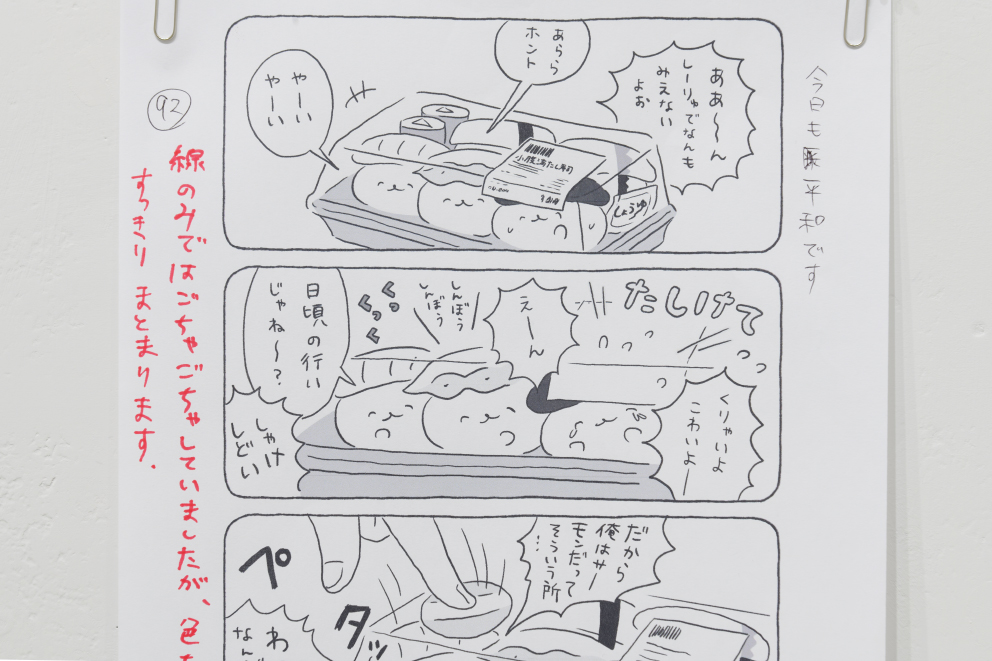 今日も
平和です
ああ〜ん
しーりゅでなんも
みえない
よぉ
あらら
ホント
やーい
やーい
小腹満たし寿司
しょうゆ
92
線のみではごちゃごちゃしていましたが、色を
すっきりまとまります。
たしけて
くりゃいよ
こわいよー
えーん
しんぼう
しんぼう
くっくっく
日頃の行い
じゃね〜?
しゃけ
しどい
だから
俺はサー
モンだって
そういう所
…
ペ
タッ
わ
なん